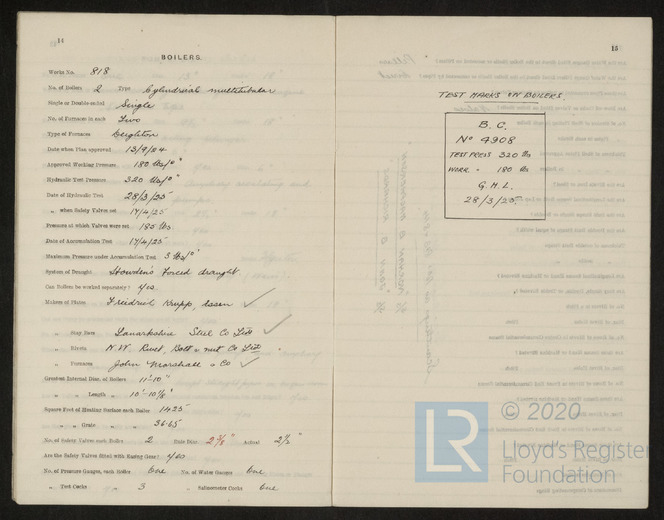 14
BOILERS.
Works No. 818
No. of Boilers 2 Type Cylindrical multitubular
Single or Double-ended Single
No. of Furnaces in each Two
Type of Furnaces Deighton
Date when Plan approved 13/9/24
Approved Working Pressure 180 lbs/□"
Hydraulic Test Pressure 320 lbs/□"
Date of Hydraulic Test 28/3/25
„ when Safety Valves set 17/4/25
Pressure at which Valves were set 185 lbs
Date of Accumulation Test 17/4/25
Maximum Pressure under Accumulation Test 3 lbs/□"
System of Draught Howden's Forced draught
Can Boilers be worked separately? yes
Makers of Plates Friedrich Krupp, Essen
„ Stay Bars Lanarkshire Steel Co Ltd
„ Rivets N.W. Rivet, Bolt & nut Co Ltd
„ Furnaces John Marshall & Co
Greatest Internal Diam. of Boilers 11'-10"
„ „ Length „ 10'-10⅞"
Square Feet of Heating Surface each Boiler 1425
„ „ Grate „ „ 36.65
No. of Safety Valves each Boiler 2 Rule Diam. 2⅜" Actual 2½"
Are the Safety Valves fitted with Easing Gear? yes
No. of Pressure Gauges, each Boiler One No. of Water Gauges One
„ Test Cocks „ 3 „ Salinometer Cocks One
15
TEST MARKS ON BOILERS.
B. C.
No 4908
TEST PRESS 320 lbs
WORK „ 180 lbs
G.H.L.
28/3/25.
© 2020
LR
Lloyd's Register
Foundation